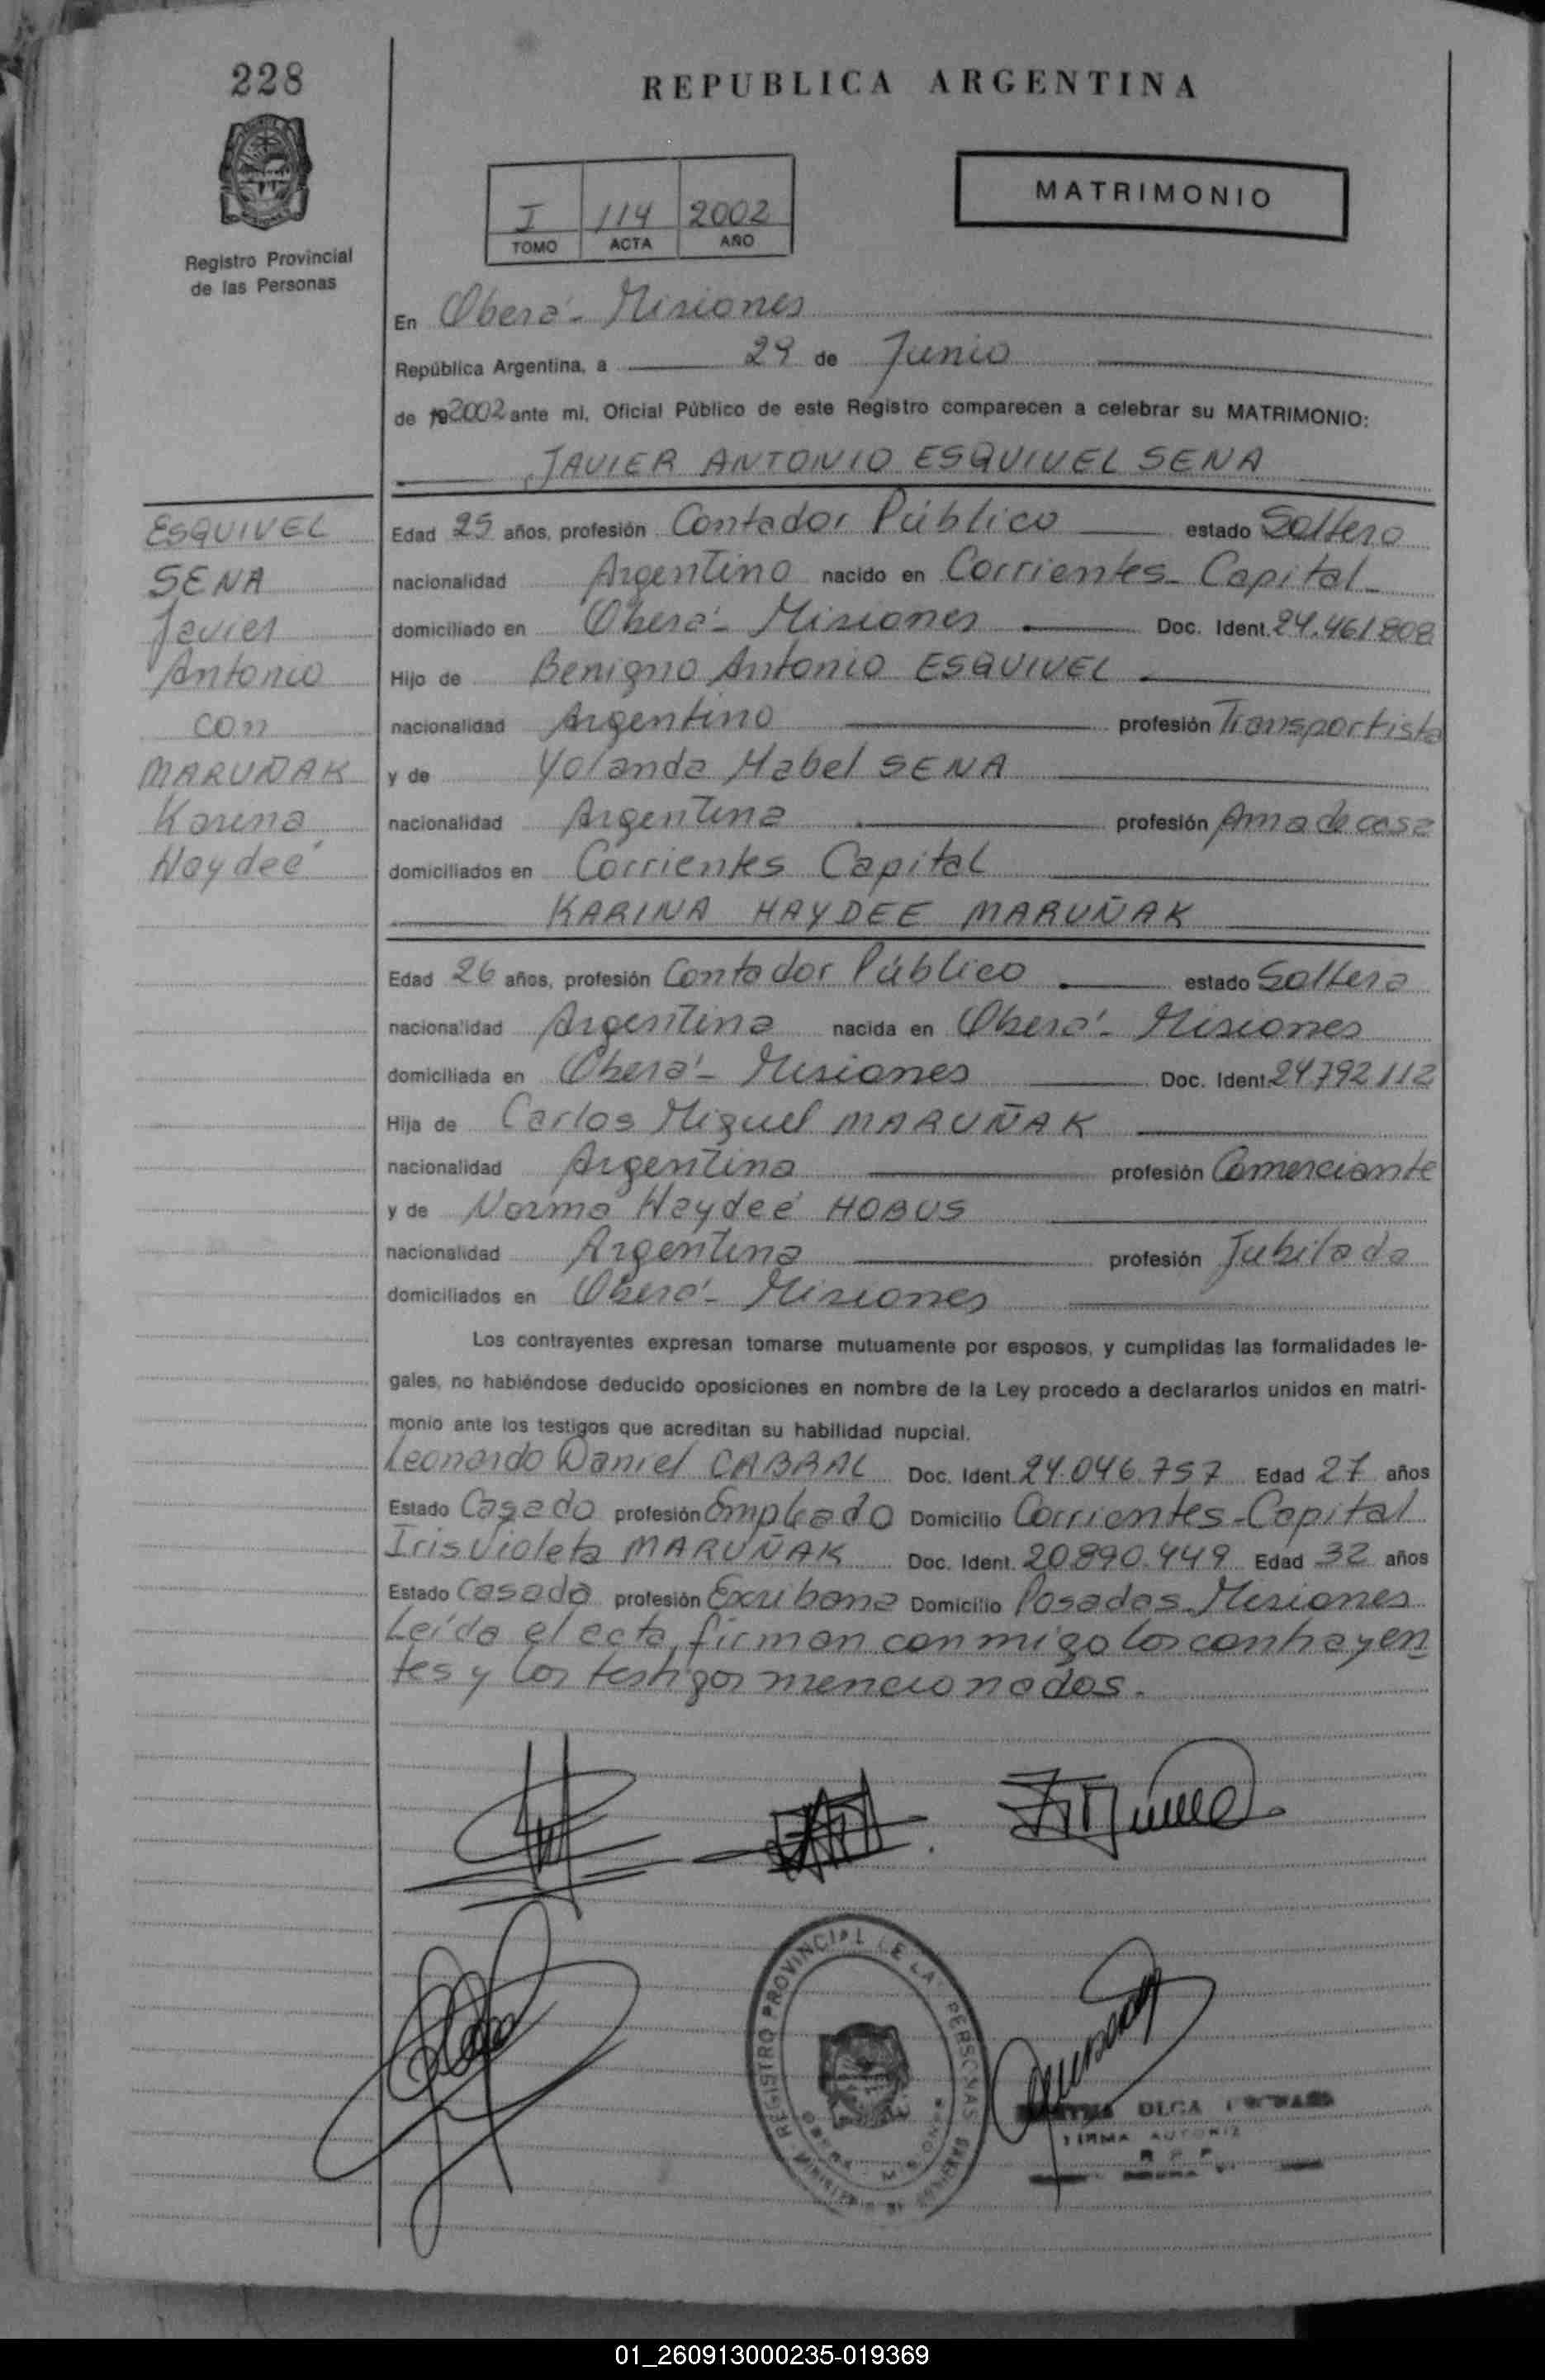 228
REPUBLICA ARGENTINA
MATRIMONIO
I 114 2002
TOMO ACTA AÑO
Registro Provincial
de las Personas
En Oberá - Misiones
República Argentina, a 29 de Junio
de 2002 ante mi, Oficial Público de este Registro comparecen a celebrar su MATRIMONIO:
JAVIER ANTONIO ESQUIVEL SENA
ESQUIVEL
SENA
Javier
Antonio
con
MARUÑAK
Karina
Haydeé
Edad 25 años, profesión Contador Público estado Soltero
nacionalidad Argentino nacido en Corrientes - Capital
domiciliado en Oberá - Misiones Doc. Ident. 24.461.808
Hijo de Benigno Antonio ESQUIVEL
nacionalidad Argentino profesión Transportista
y de Yolanda Mabel SENA
nacionalidad Argentina profesión Ama de casa
domiciliados en Corrientes Capital
KARINA HAYDEE MARUÑAK
Edad 26 años, profesión Contador Público estado Soltera
nacionalidad Argentina nacida en Oberá - Misiones
domiciliada en Oberá - Misiones Doc. Ident. 24792112
Hija de Carlos Miguel MARUÑAK
nacionalidad Argentina profesión Comerciante
y de Norma Haydeé HOBUS
nacionalidad Argentina profesión Jubilada
domiciliados en Oberá - Misiones
Los contrayentes expresan tomarse mutuamente por esposos, y cumplidas las formalidades le-
gales, no habiéndose deducido oposiciones en nombre de la Ley procedo a declararlos unidos en matri-
monio ante los testigos que acreditan su habilidad nupcial.
Leonardo Daniel CABRAL Doc. Ident. 24.046.757 Edad 27 años
Estado Casado profesión Empleado Domicilio Corrientes - Capital
Iris Violeta MARUÑAK Doc. Ident. 20.890.449 Edad 32 años
Estado Casada profesión Escribana Domicilio Posadas - Misiones
Leída el acta, firman conmigo los contrayen
tes y los testigos mencionados.
REGISTRO PROVINCIAL DE LAS PERSONAS
OLGA
FIRMA AUTORIZ
01_260913000235-019369